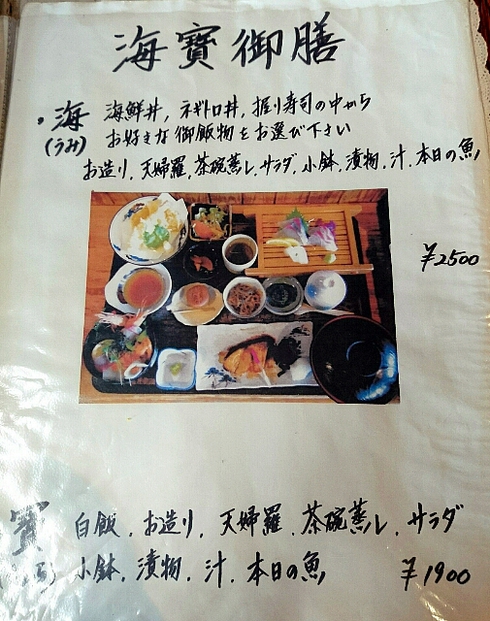 海寶御膳
・海 海鮮丼, ネギトロ丼, 握り寿司の中から
(うみ) お好きな御飯物をお選び下さい
お造り, 天婦羅, 茶碗蒸し, サラダ, 小鉢, 漬物, 汁, 本日の魚
¥2500
寶 白飯, お造り, 天婦羅, 茶碗蒸し, サラダ
小鉢, 漬物, 汁, 本日の魚 ¥1900